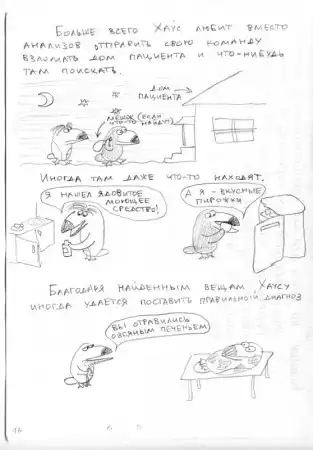 Больше всего Хаус любит вместо
анализов отправить свою команду
взломать дом пациента и что-нибудь
там поискать.
дом
пациента
мешок (если
что-то
найдут)
Иногда там даже что-то находят.
Я нашел ядовитое
моющее
средство!
А я - вкусные
пирожки
Благодаря найденным вещам, Хаусу
иногда удается поставить правильный диагноз
Вы отравились
овсяным печеньем